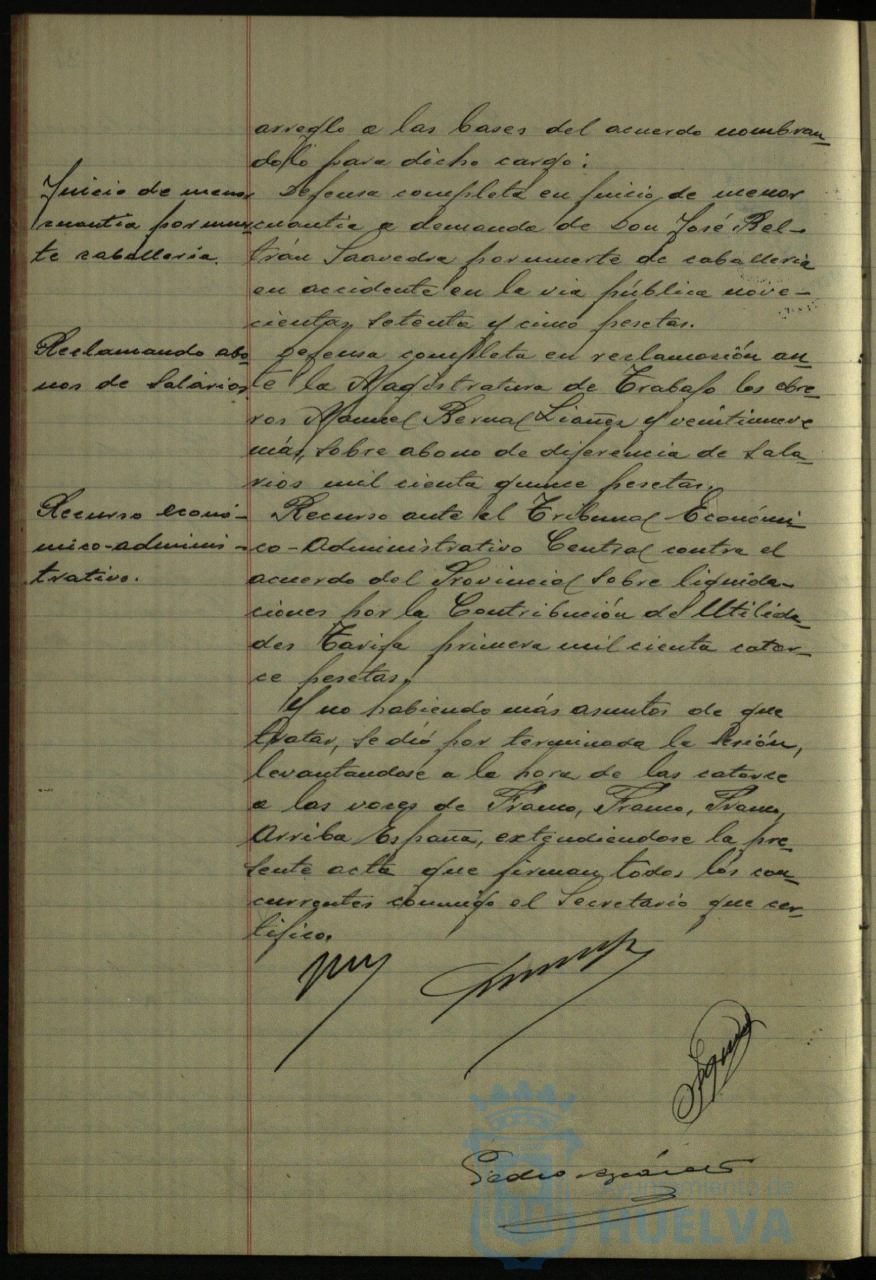 arreglo a las bases del acuerdo nombran-
dolo para dicho cargo:
Juicio de menor
cuantia por muer-
te caballeria.
Defensa completa en juicio de menor
cuantia a demanda de Don José Bel-
trán Saavedra por muerte de caballeria
en accidente en la via pública nove-
cientas setenta y cinco pesetas.
Reclamando abo-
nos de Salarios
Defensa completa en reclamación an-
te la Magistratura de Trabajo los obre-
ros Manuel Bernal Liañez y veintinueve
más, sobre abono de diferencia de Sala-
rios mil cienta quince pesetas.
Recurso econó-
mico-adminis-
trativo.
Recurso ante el Tribunal Económi-
co-Administrativo Central contra el
acuerdo del Provincial sobre liquida-
ciones por la Contribución de Utilida-
des Tarifa primera mil cienta cator-
ce pesetas.
Y no habiendo más asuntos de que
tratar, se dió por terminada la sesión,
levantandose a la hora de las catorce
a las voces de Franco, Franco, Franco,
Arriba España, extendiendose la pre-
sente acta que firman todos los con-
currentes conmigo el Secretario que cer-
tifico.
Pedro
Ayuntamiento de
HUELVA